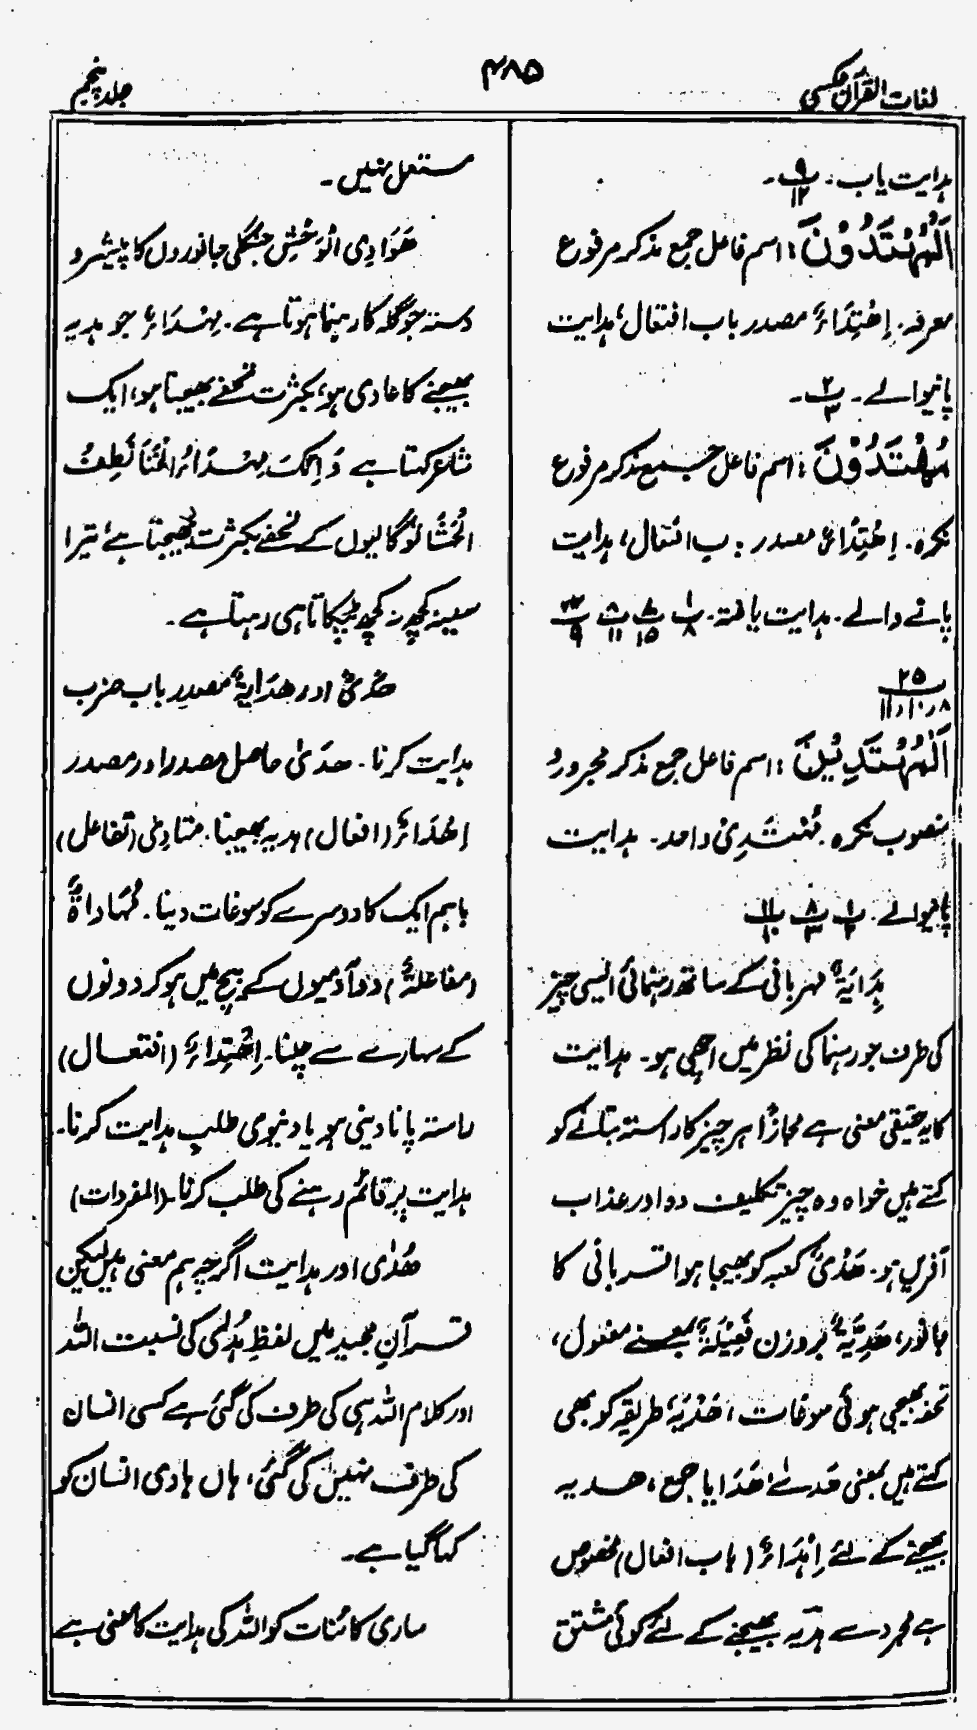 لغات القرآن عکسی
۴۸۵
جلد پنجم
ہدایت یاب۔ پ ۹/۱۲۔
اَلْمُهْتَدُوْنَ: اسم فاعل جمع مذکر مرفوع
معرفہ۔ اِهْتِدَاءٌ مصدر باب افتعال، ہدایت
پانیوالے۔ پ ۲/۳۔
مُهْتَدُوْنَ: اسم فاعل جمع مذکر مرفوع
نکرہ۔ اِهْتِدَاءٌ مصدر باب افتعال، ہدایت
پانے والے۔ ہدایت یافتہ۔ پ ۱/۸ پ ۷/۱۵ پ ۸/۱۱ پ ۲۲/۹
پ ۲۵/۸ و ۱۰ و ۱۱
اَلْمُهْتَدِيْنَ: اسم فاعل جمع مذکر مجرور و
منصوب نکرہ۔ مُهْتَدِیْ واحد۔ ہدایت
پانیوالے۔ پ ۱/۲ پ ۸/۳ پ ۱۱/۱۰
ہِدَايَةٌ مہربانی کے ساتھ رہنمائی ایسی چیز
کی طرف جو رہنما کی نظر میں اچھی ہو۔ ہدایت
کا یہ حقیقی معنی ہے مجازًا ہر چیز کا راستہ بتانے کو
کہتے ہیں خواہ وہ چیز تکلیف دہ اور عذاب
آفریں ہو۔ هَدْیٌ کعبہ کو بھیجا ہوا قربانی کا
جانور، هَدِيَّةٌ بروزن فَعِيْلَةٌ بمعنے مفعول،
تحفہ بھیجی ہوئی سوغات، هَدْيَةٌ طریقہ کو بھی
کہتے ہیں بمعنی هَدْیٌ هَدَايا جمع، ھدیہ
بھیجنے کے لئے اِهْدَاءٌ (باب افعال) مخصوص
ہے مجرد سے ہدیہ بھیجنے کے لئے کوئی مشتق
مستعمل نہیں۔
هَوَادِی الْوَحْشِ جنگلی جانوروں کا پیشرو
دستہ جو گلہ کا رہنما ہوتا ہے۔ مِهْدَاءٌ جو ہدیہ
بھیجنے کا عادی ہو، بکثرت تحفے بھیجتا ہو، ایک
شاعر کہتا ہے وَاِنَّكَ مِهْدَاءُ الْخَنَا نَطِفُ
الْحَشَا تو گالیوں کے تحفے بکثرت بھیجتا ہے تیرا
سینہ کچھ نہ کچھ ٹپکاتا ہی رہتا ہے۔
هُدًی اور هِدَايَةٌ مصدر باب ضرب
ہدایت کرنا۔ هُدًی حاصل مصدر اور مصدر
اِهْدَاءٌ (افعال) ہدیہ بھیجنا۔ تَهَادِیْ (تفاعل)
باہم ایک کا دوسرے کو سوغات دینا۔ مُهَادَاةٌ
(مفاعلة) دو آدمیوں کے بیچ میں ہو کر دونوں
کے سہارے سے چلنا۔ اِهْتِدَاءٌ (افتعال)
راستہ پانا دینی ہو یا دنیوی طلبِ ہدایت کرنا۔
ہدایت پر قائم رہنے کی طلب کرنا۔ (المفردات)
هُدٰی اور ہدایت اگرچہ ہم معنی ہیں لیکن
قرآنِ مجید میں لفظِ ہُدٰی کی نسبت اللہ
اور کلام اللہ ہی کی طرف کی گئی ہے کسی انسان
کی طرف نہیں کی گئی، ہاں ہادی انسان کو
کہا گیا ہے۔
ساری کائنات کو اللہ کی ہدایت کا معنی ہے